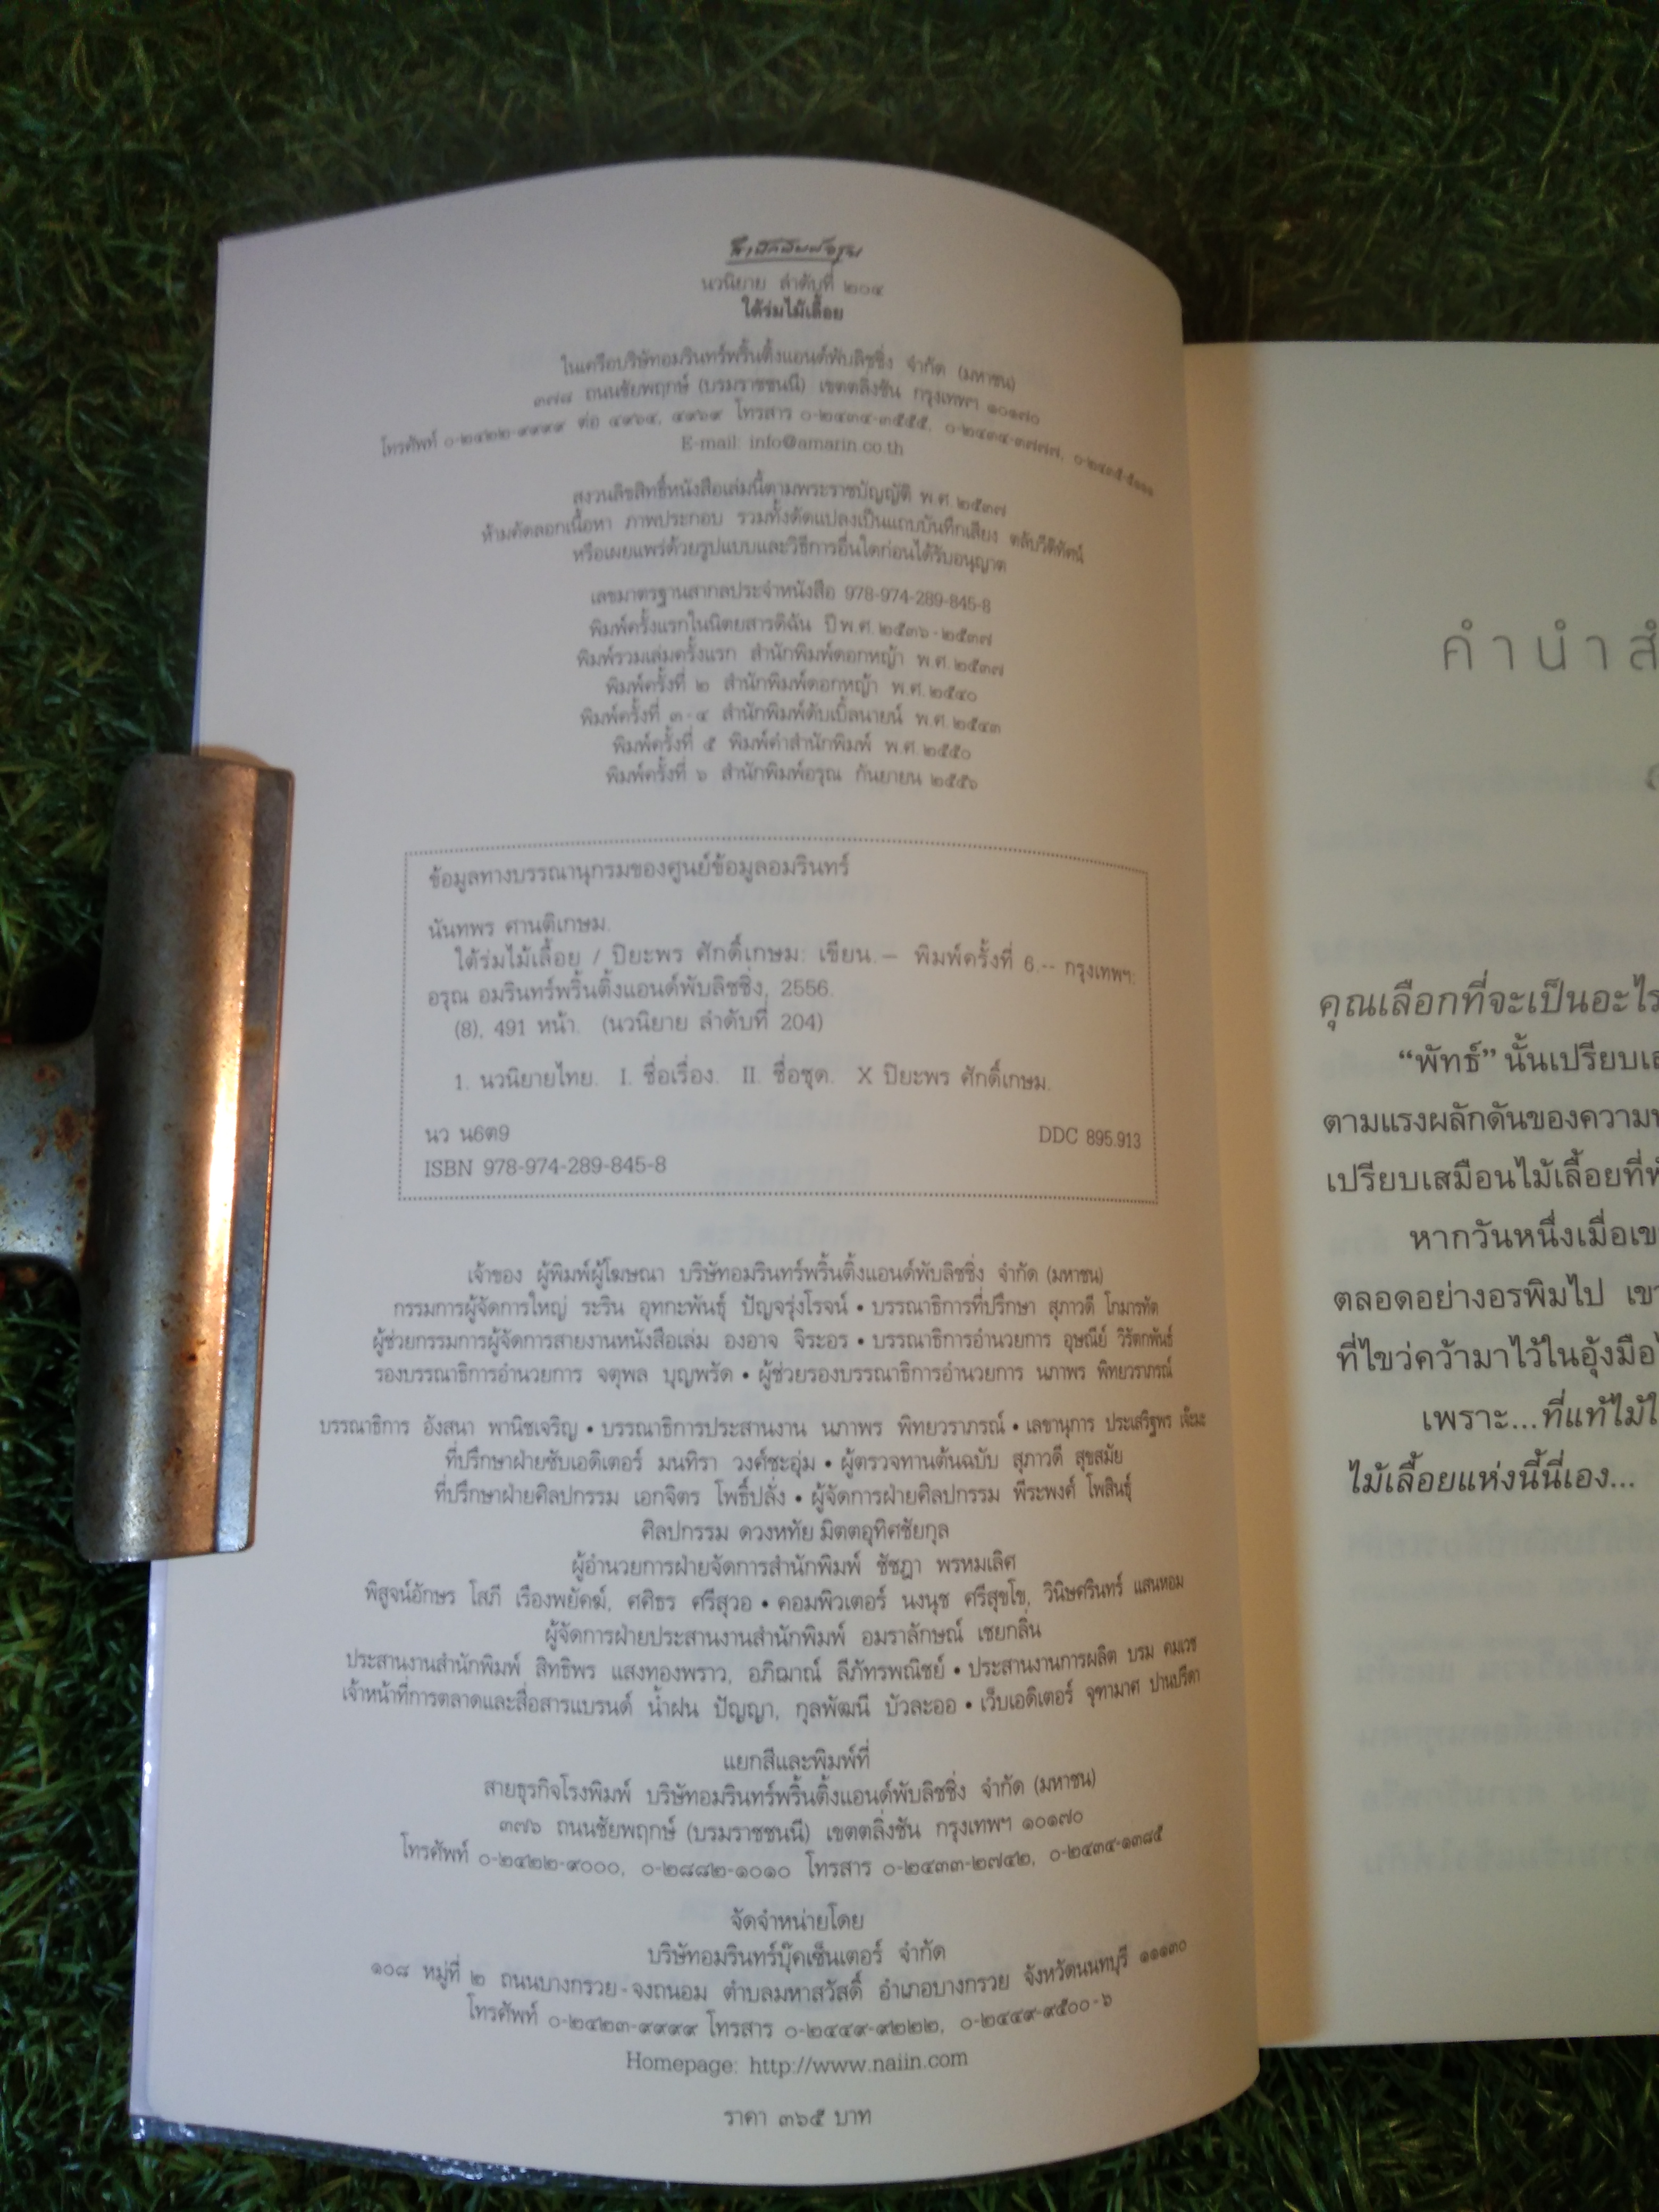 สำนักพิมพ์อรุณ
นวนิยาย ลำดับที่ ๒๐๔
ใต้ร่มไม้เลื้อย
ในเครือบริษัทอมรินทร์พริ้นติ้งแอนด์พับลิชชิ่ง จำกัด (มหาชน)
๓๗๘ ถนนชัยพฤกษ์ (บรมราชชนนี) เขตตลิ่งชัน กรุงเทพฯ ๑๐๑๗๐
โทรศัพท์ ๐-๒๔๒๒-๙๙๙๙ ต่อ ๔๙๖๔, ๔๙๖๙ โทรสาร ๐-๒๔๓๔-๓๕๕๕, ๐-๒๔๓๔-๓๗๗๗, ๐-๒๔๓๕-๕๑๑๑
E-mail: info@amarin.co.th
สงวนลิขสิทธิ์หนังสือเล่มนี้ตามพระราชบัญญัติ พ.ศ. ๒๕๓๗
ห้ามคัดลอกเนื้อหา ภาพประกอบ รวมทั้งดัดแปลงเป็นแถบบันทึกเสียง ตลับวีดิทัศน์
หรือเผยแพร่ด้วยรูปแบบและวิธีการอื่นใดก่อนได้รับอนุญาต
เลขมาตรฐานสากลประจำหนังสือ 978-974-289-845-8
พิมพ์ครั้งแรกในนิตยสารดิฉัน ปี พ.ศ. ๒๕๓๖-๒๕๓๗
พิมพ์รวมเล่มครั้งแรก สำนักพิมพ์ดอกหญ้า พ.ศ. ๒๕๓๗
พิมพ์ครั้งที่ ๒ สำนักพิมพ์ดอกหญ้า พ.ศ. ๒๕๔๐
พิมพ์ครั้งที่ ๓-๔ สำนักพิมพ์ดับเบิ้ลนายน์ พ.ศ. ๒๕๔๓
พิมพ์ครั้งที่ ๕ พิมพ์คำสำนักพิมพ์ พ.ศ. ๒๕๕๐
พิมพ์ครั้งที่ ๖ สำนักพิมพ์อรุณ กันยายน ๒๕๕๖
ข้อมูลทางบรรณานุกรมของศูนย์ข้อมูลอมรินทร์
นันทพร ศานติเกษม.
ใต้ร่มไม้เลื้อย / ปิยะพร ศักดิ์เกษม: เขียน.— พิมพ์ครั้งที่ 6.-- กรุงเทพฯ:
อรุณ อมรินทร์พริ้นติ้งแอนด์พับลิชชิ่ง, 2556.
(8), 491 หน้า. (นวนิยาย ลำดับที่ 204)
1. นวนิยายไทย. I. ชื่อเรื่อง. II. ชื่อชุด. X ปิยะพร ศักดิ์เกษม.
นว น6ต9 DDC 895.913
ISBN 978-974-289-845-8
เจ้าของ ผู้พิมพ์ผู้โฆษณา บริษัทอมรินทร์พริ้นติ้งแอนด์พับลิชชิ่ง จำกัด (มหาชน)
กรรมการผู้จัดการใหญ่ ระริน อุทกะพันธุ์ ปัญจรุ่งโรจน์ • บรรณาธิการที่ปรึกษา สุภาวดี โกมารทัต
ผู้ช่วยกรรมการผู้จัดการสายงานหนังสือเล่ม องอาจ จิระอร • บรรณาธิการอำนวยการ อุษณีย์ วิรัตกพันธ์
รองบรรณาธิการอำนวยการ จตุพล บุญพรัด • ผู้ช่วยรองบรรณาธิการอำนวยการ นภาพร พิทยวราภรณ์
บรรณาธิการ อังสนา พานิชเจริญ • บรรณาธิการประสานงาน นภาพร พิทยวราภรณ์ • เลขานุการ ประเสริฐพร เจ๊ะมะ
ที่ปรึกษาฝ่ายซับเอดิเตอร์ มนทิรา วงศ์ชะอุ่ม • ผู้ตรวจทานต้นฉบับ สุภาวดี สุขสมัย
ที่ปรึกษาฝ่ายศิลปกรรม เอกจิตร โพธิ์ปลั่ง • ผู้จัดการฝ่ายศิลปกรรม พีระพงศ์ โพสินธุ์
ศิลปกรรม ดวงหทัย มิตตอุทิศชัยกุล
ผู้อำนวยการฝ่ายจัดการสำนักพิมพ์ ชัชฎา พรหมเลิศ
พิสูจน์อักษร โสภี เรืองพยัคฆ์, ศศิธร ศรีสุวอ • คอมพิวเตอร์ นงนุช ศรีสุขโข, วินิษศรินทร์ แสนหอม
ผู้จัดการฝ่ายประสานงานสำนักพิมพ์ อมราลักษณ์ เชยกลิ่น
ประสานงานสำนักพิมพ์ สิทธิพร แสงทองพราว, อภิฌาณ์ ลีภัทรพณิชย์ • ประสานงานการผลิต บรม คมเวช
เจ้าหน้าที่การตลาดและสื่อสารแบรนด์ น้ำฝน ปัญญา, กุลพัฒนี บัวละออ • เว็บเอดิเตอร์ จุฑามาศ ปานปรีดา
แยกสีและพิมพ์ที่
สายธุรกิจโรงพิมพ์ บริษัทอมรินทร์พริ้นติ้งแอนด์พับลิชชิ่ง จำกัด (มหาชน)
๓๗๖ ถนนชัยพฤกษ์ (บรมราชชนนี) เขตตลิ่งชัน กรุงเทพฯ ๑๐๑๗๐
โทรศัพท์ ๐-๒๔๒๒-๙๐๐๐, ๐-๒๘๘๒-๑๐๑๐ โทรสาร ๐-๒๔๓๓-๒๗๔๒, ๐-๒๔๓๔-๑๓๘๕
จัดจำหน่ายโดย
บริษัทอมรินทร์บุ๊คเซ็นเตอร์ จำกัด
๑๐๘ หมู่ที่ ๒ ถนนบางกรวย-จงถนอม ตำบลมหาสวัสดิ์ อำเภอบางกรวย จังหวัดนนทบุรี ๑๑๑๓๐
โทรศัพท์ ๐-๒๔๒๓-๙๙๙๙ โทรสาร ๐-๒๔๔๙-๙๒๒๒, ๐-๒๔๔๙-๙๕๐๐-๖
Homepage: http://www.naiin.com
ราคา ๓๖๕ บาท
คำนำสำ
คุณเลือกที่จะเป็นอะไร
“พัทธ์” นั้นเปรียบเส
ตามแรงผลักดันของความ
เปรียบเสมือนไม้เลื้อยที่
หากวันหนึ่งเมื่อเข
ตลอดอย่างอรพิมไป เขา
ที่ไขว่คว้ามาไว้ในอุ้งมือ
เพราะ...ที่แท้ไม้ใ
ไม้เลื้อยแห่งนี้นี่เอง...